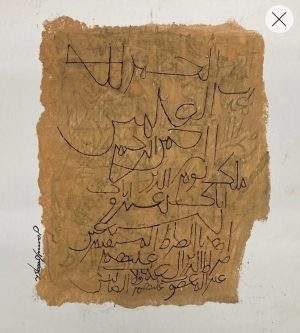 الحمد لله
رب العلمين
الرحمن الرحيم
ملك يوم الدين
اياك نعبد و
اهدنا الصرط المستقيم
صرط الذين عليهم
غير المغضوب عليهم ولا الضالين